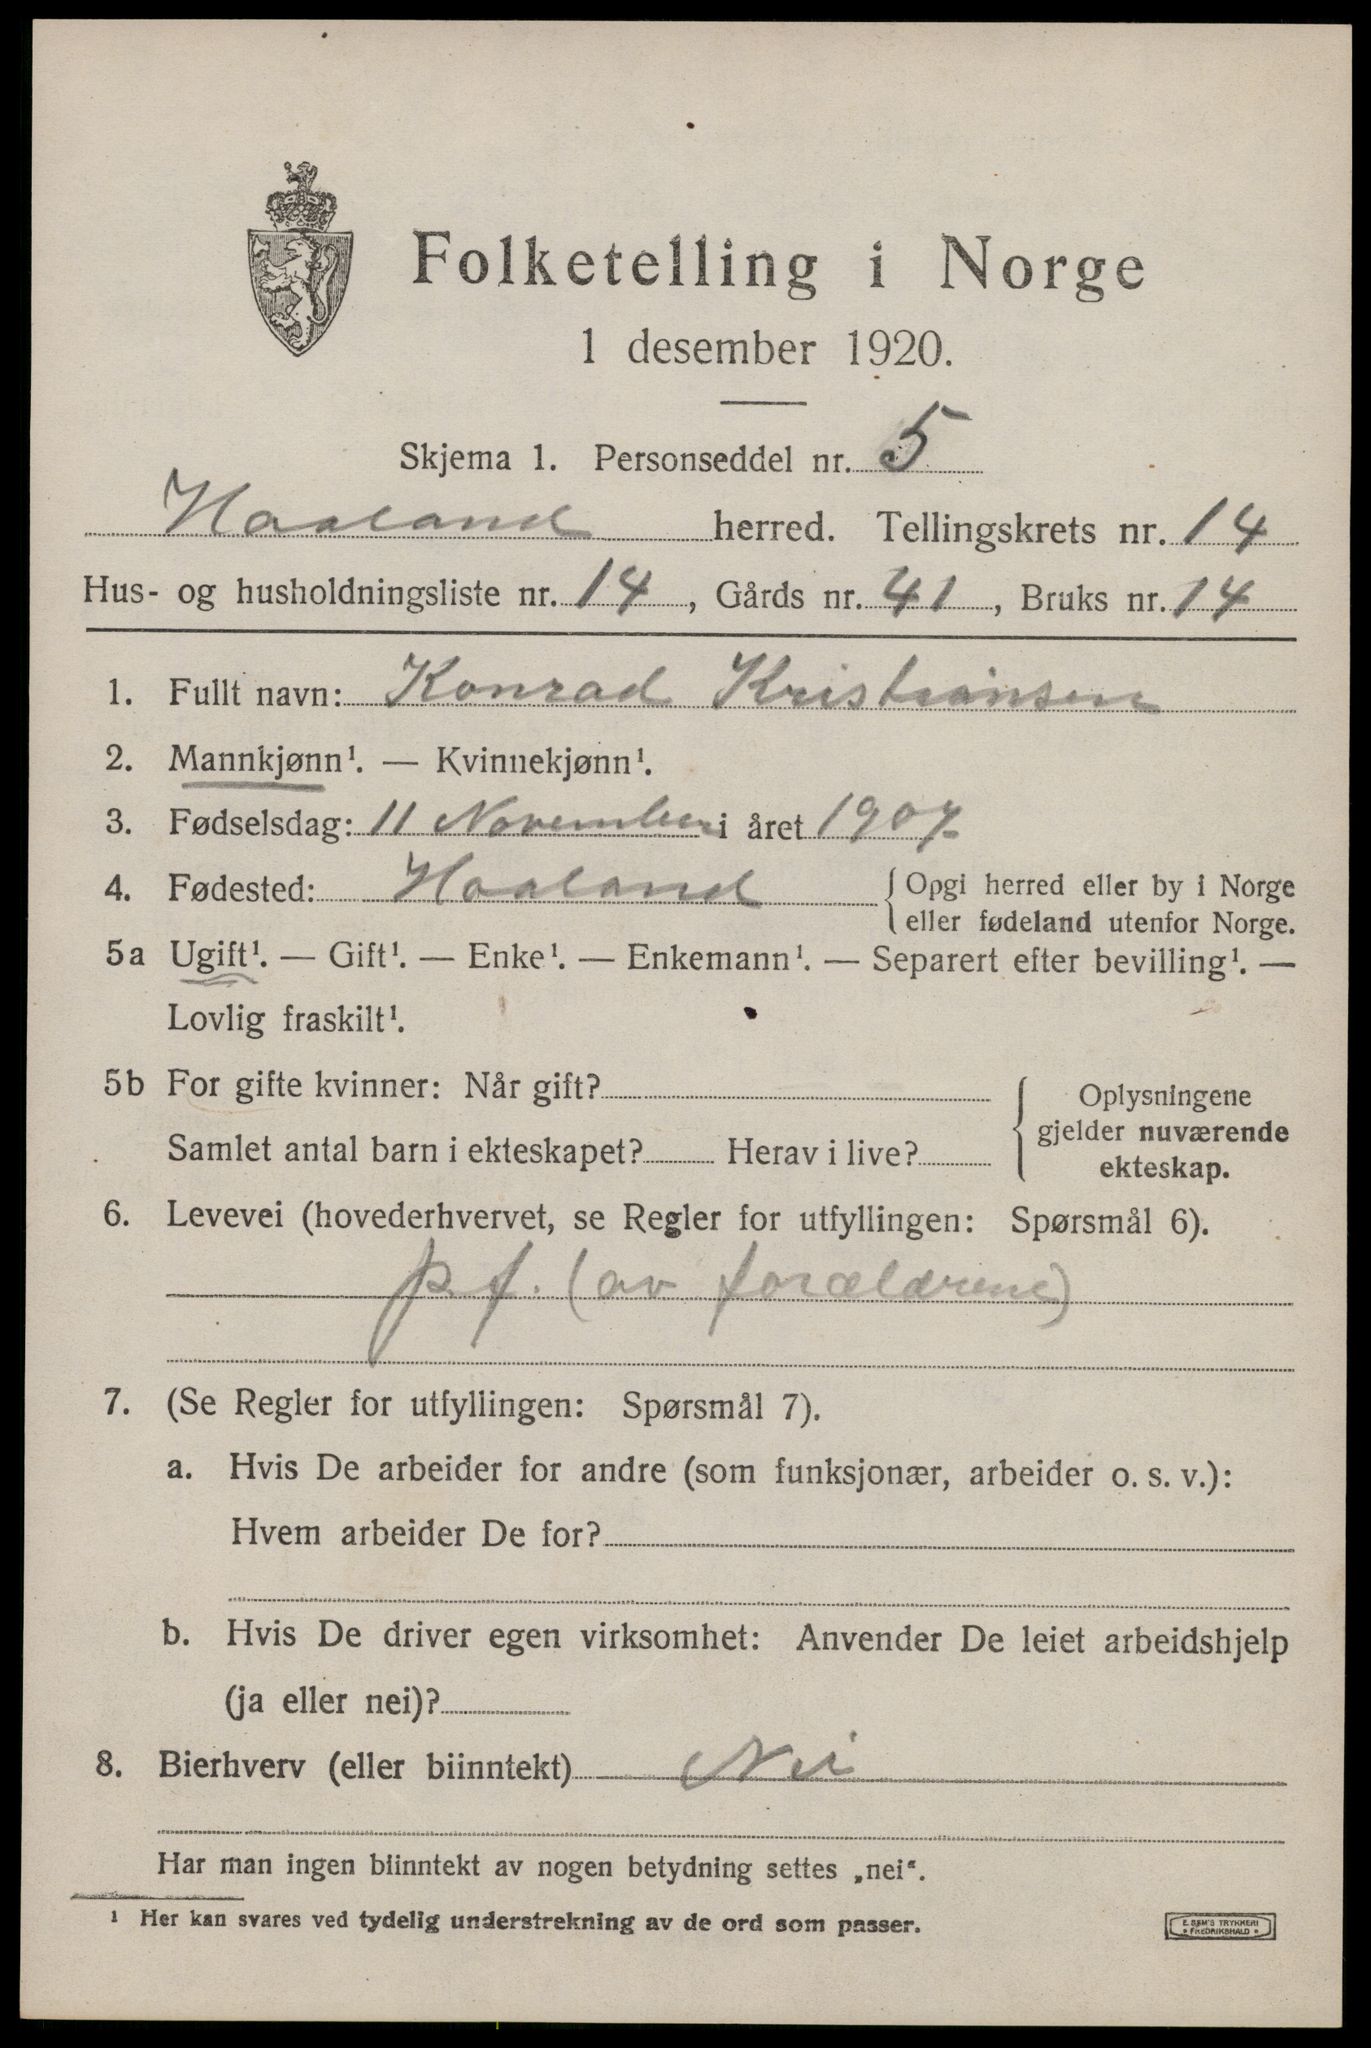 Folketelling i Norge
1 desember 1920.
Skjema 1. Personseddel nr. 5
Haaland herred. Tellingskrets nr. 14
Hus- og husholdningsliste nr. 14, Gårds nr. 41, Bruks nr. 14
1. Fullt navn: Konrad Kristiansen
2. Mannkjønn¹. — Kvinnekjønn¹.
3. Fødselsdag: 11 November i året 1907
4. Fødested: Haaland {Opgi herred eller by i Norge
eller fødeland utenfor Norge.
5a Ugift¹. — Gift¹. — Enke¹. — Enkemann¹. — Separert efter bevilling¹. —
Lovlig fraskilt¹.
5b For gifte kvinner: Når gift?
Samlet antal barn i ekteskapet? Herav i live?
{Oplysningene
gjelder nuværende
ekteskap.
6. Levevei (hovederhvervet, se Regler for utfyllingen: Spørsmål 6).
p. f. (av forældrene)
7. (Se Regler for utfyllingen: Spørsmål 7).
a. Hvis De arbeider for andre (som funksjonær, arbeider o. s. v.):
Hvem arbeider De for?
b. Hvis De driver egen virksomhet: Anvender De leiet arbeidshjelp
(ja eller nei)?
8. Bierhverv (eller biinntekt) Nei
Har man ingen biinntekt av nogen betydning settes „nei“.
¹ Her kan svares ved tydelig understrekning av de ord som passer.
E. SEM'S TRYKKERI
FREDRIKSHALD